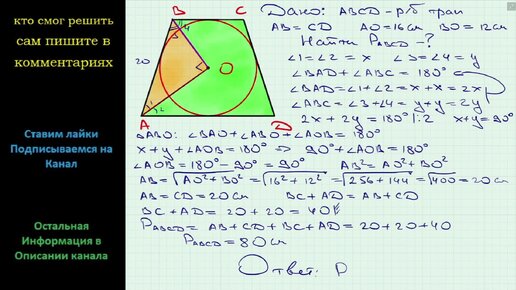 кто смог решить
сам пишите в
комментариях
Ставим лайки
Подписываемся на
Канал
Остальная
Информация в
Описании канала
B C
3 4
20
O
1 2
A D
Дано: ABCD - р/б трап
AB = CD AO = 16см BO = 12см
Найти PABCD - ?
∠1 = ∠2 = x ∠3 = ∠4 = y
∠BAD + ∠ABC = 180°
∠BAD = ∠1 + ∠2 = x + x = 2x
∠ABC = ∠3 + ∠4 = y + y = 2y
2x + 2y = 180° |:2 x + y = 90°
△ABO: ∠BAO + ∠ABO + ∠AOB = 180°
x + y + ∠AOB = 180° ⇒ 90° + ∠AOB = 180°
∠AOB = 180° - 90° = 90° AB² = AO² + BO²
AB = √AO² + BO² = √16² + 12² = √256 + 144 = √400 = 20см
AB = CD = 20см BC + AD = AB + CD
BC + AD = 20 + 20 = 40
PABCD = AB + CD + BC + AD = 20 + 20 + 40
PABCD = 80см
Ответ: P